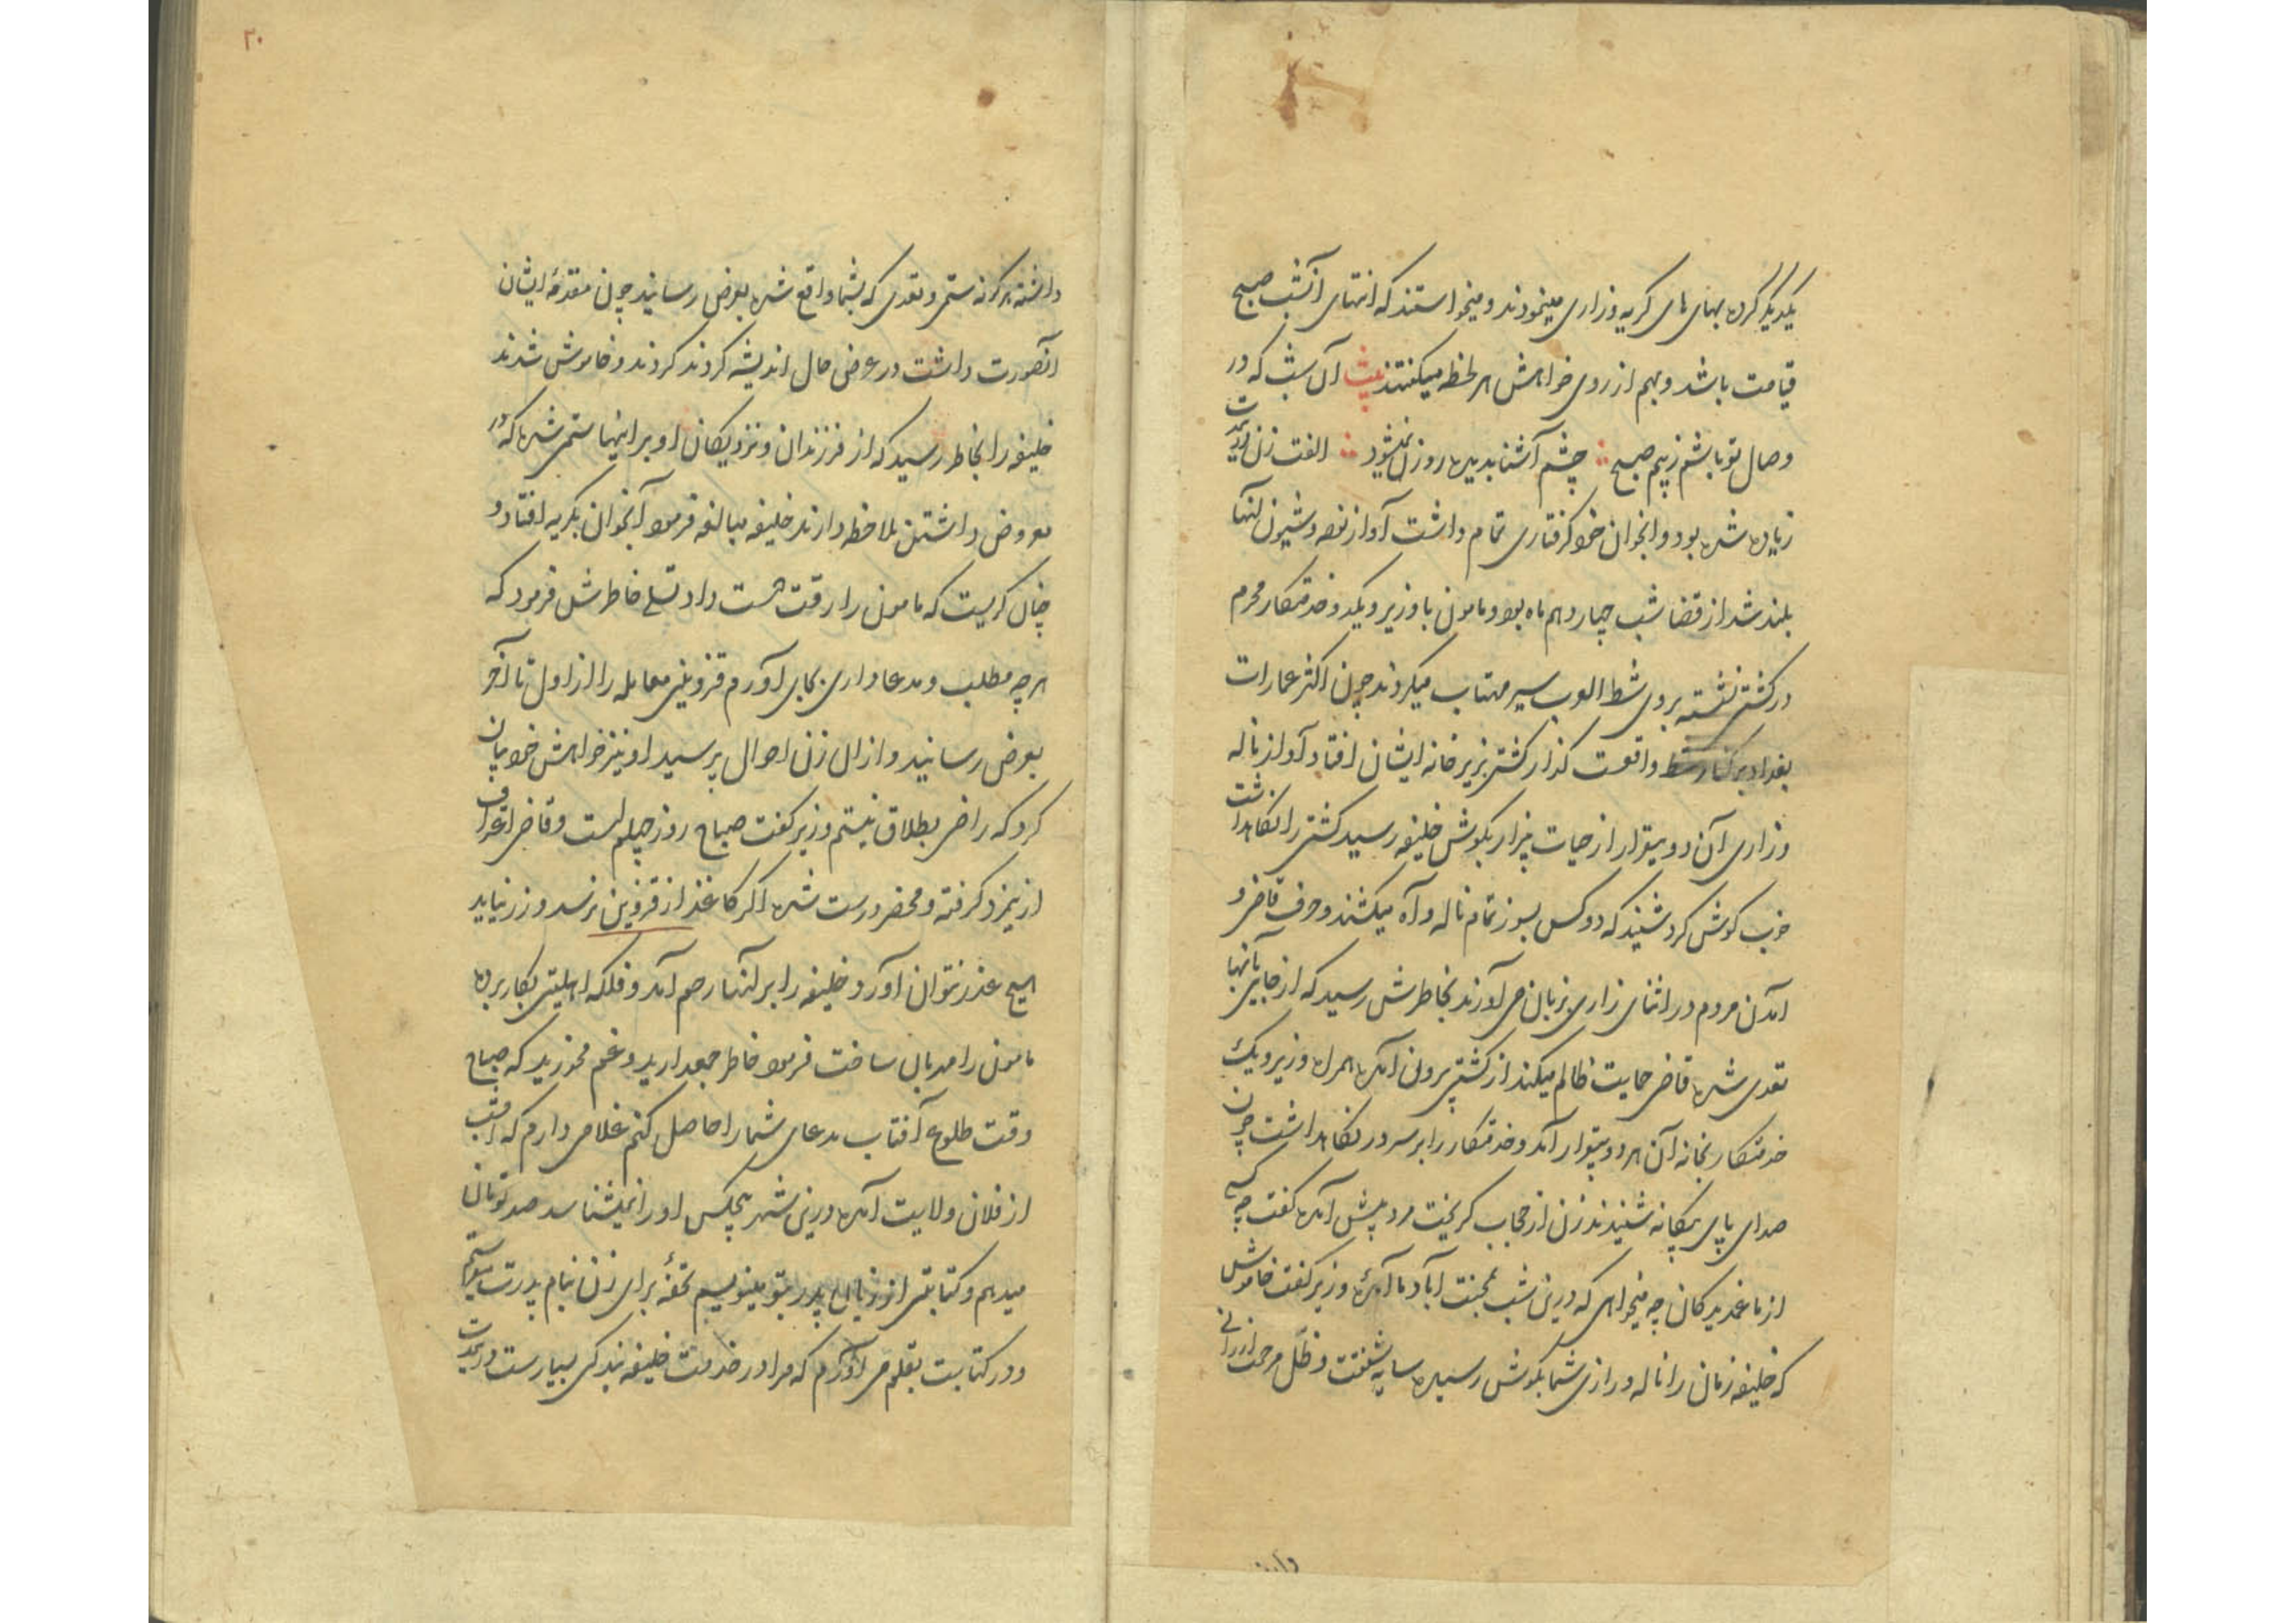 یکدیگر کرده بهای های کریه وزاری مینمودند و میخواستند که انتهای آنشب صبح
قیامت باشد و بهم از روی خواهش هر لحظه میکفتند بیت آن شب که در
وصال تو باشم ز بیم صبح چشم آشنا بدیده روزن نمیشود الفت زن
زیاده شده بود و آنجوان خود کرفتاری تمام داشت آواز نوحه و شیون آنها
بلند شد از قضا شب چهاردهم ماه بود و مامون با وزیر و یکدو خدمتکار محرم
در کشتی نشسته بروی شط العرب سیر مهتاب میکردند چون اکثر عمارات
بغداد بر کنار شط واقعست کذار کشتی بزیر خانه ایشان افتاد آواز ناله
وزاری آن دو بیقرار از حیات بیزار بکوش خلیفه رسید کشتی را نکاهداشت
خوب کوش کرد شنید که دو کس بسوز تمام ناله و آه میکشند و حرف قاضی و
آمدن مردم در اثنای زاری بزبان می آورند بخاطرش رسید که از جایی بآنها
تعدی شده قاضی حمایت ظالم میکند از کشتی برون آمده همراه وزیر و یک
خدمتکار بخانه آن هر دو بیقرار آمد و خدمتکار را بر سر در نکاهداشت چون
صدای پای بیکانه شنیدند زن از حجاب کریخت مرد پیش آمده کفت چه کسی
از ما غمدیدکان چه میخواهی که درین شب بمحنت آباد ما آمدهٔ وزیر کفت خاموش
که خلیفه زمان را ناله وزاری شما بکوش رسیده سایه شفقت و ظل مرحمت ارزانی
۲۰
داشته هرکونه ستمی و تعدی که بشما واقع شده بعرض رسانید چون مقدمهٔ ایشان
آنصورت داشت در عرض حال اندیشه کردند کردند و خاموش شدند
خلیفه را بخاطر رسید که از فرزندان و نزدیکان او بر اینها ستمی شده که در
معروض داشتن ملاحظه دارند خلیفه مبالغه فرمود آنجوان بکریه افتاد و
چنان کریست که مامون را رقت دست داد تسلی خاطرش فرمود که
هر چه مطلب و مدعا داری بجای آورم قزوینی معامله را از اول تا آخر
بعرض رسانید و از آن زن احوال پرسید او نیز خواهش خود بیان
کرد که راضی بطلاق نیستم وزیر کفت صباح روز چهلم است و قاضی اعتراف
ازین مرد کرفته و محضر درست شده اکر کاغذ از قزوین نرسد و زر نیاید
هیچ عذر نتوان آورد خلیفه را بر آنها رحم آمد و فلک اهلیتی بکار برده
مامون را مهربان ساخت فرمود خاطر جمعدارید و غم مخورید که صباح
وقت طلوع آفتاب مدعای شما را حاصل کنم غلامی دارم که امشب
از فلان ولایت آمده و درین شهر هیچکس او را نمیشناسد صد تومان
میدهم و کتابتی از زبان پدر بتو مینویسم تحفهٔ برای زن بنام پدرت میفرستم
و در کتابت بقلم می آورم که مرا در خدمت خلیفه بندکی بسیارست